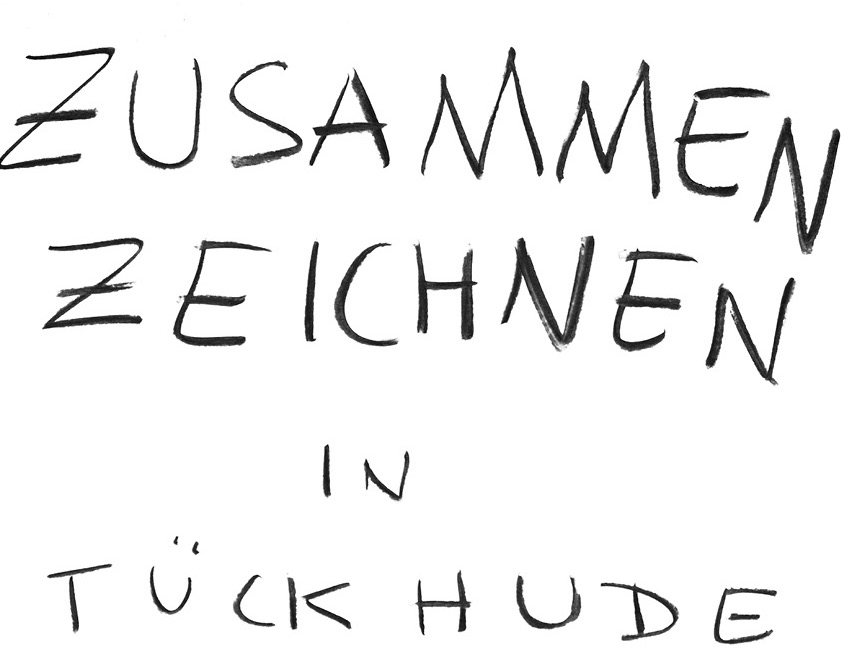 ZUSAMMEN
ZEICHNEN
IN
TÜCKHUDE